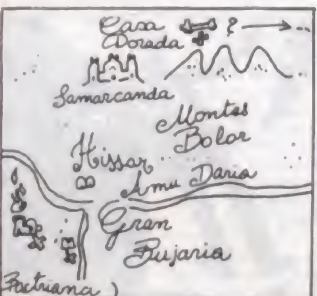 Casa
Dorada
?
Samarcanda
Montes
Bolor
Hissar
Amu Daria
Gran
Bujaria
Bactriana)